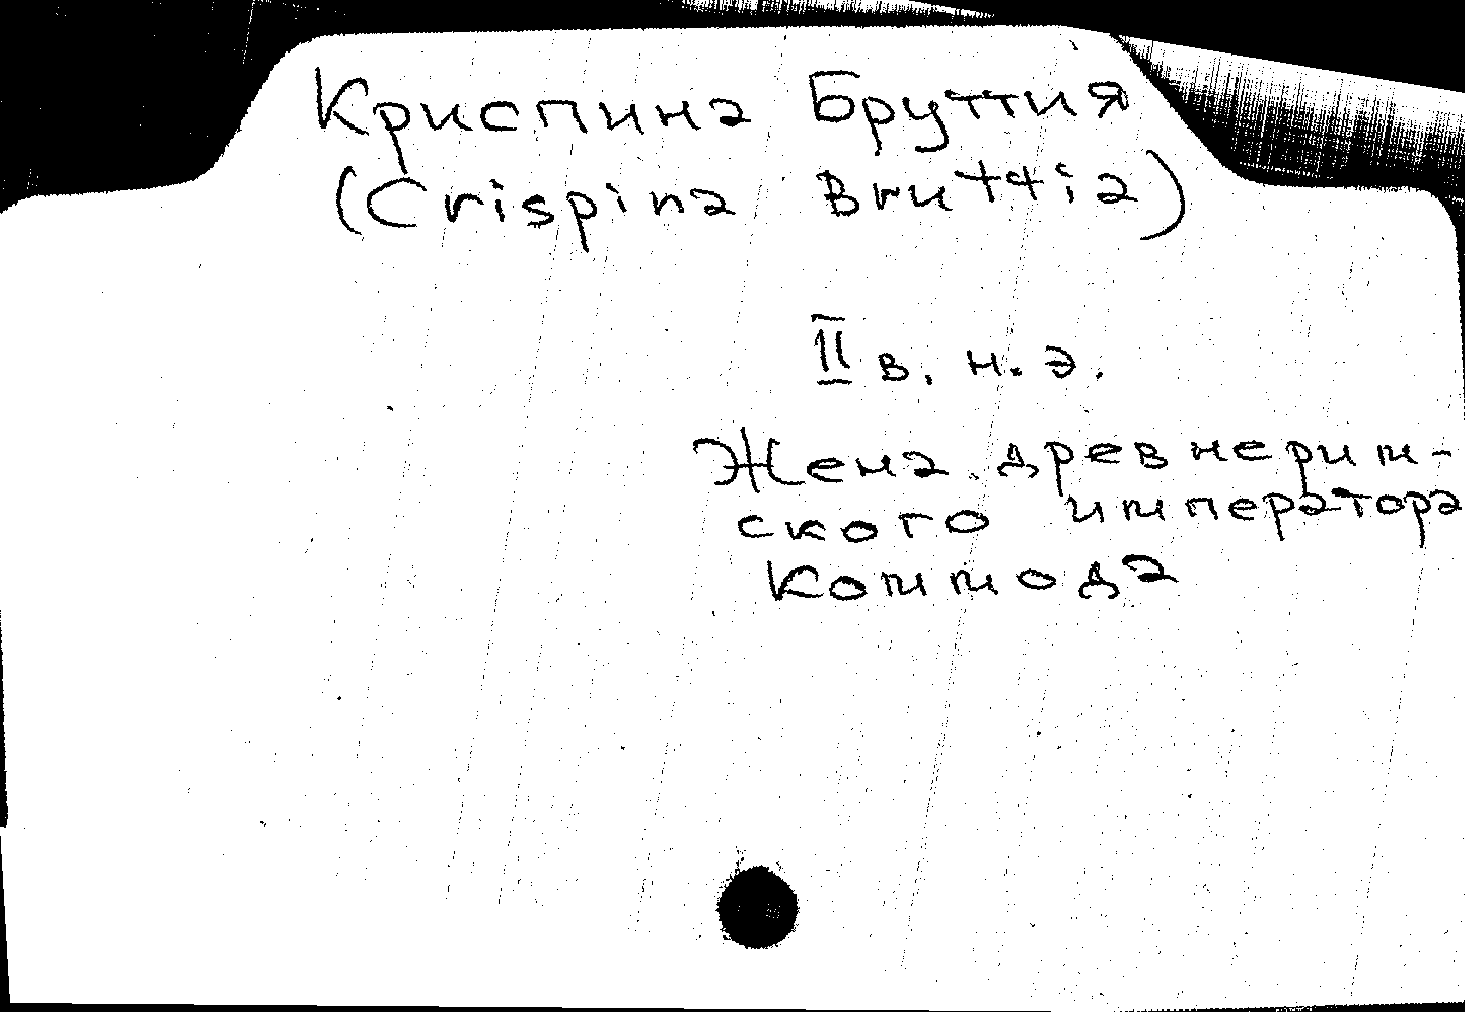 Криспина Бруттия
(Crispina Bruttia)
II в. н. э.
Жена древнерим-
ского императора
Коммода